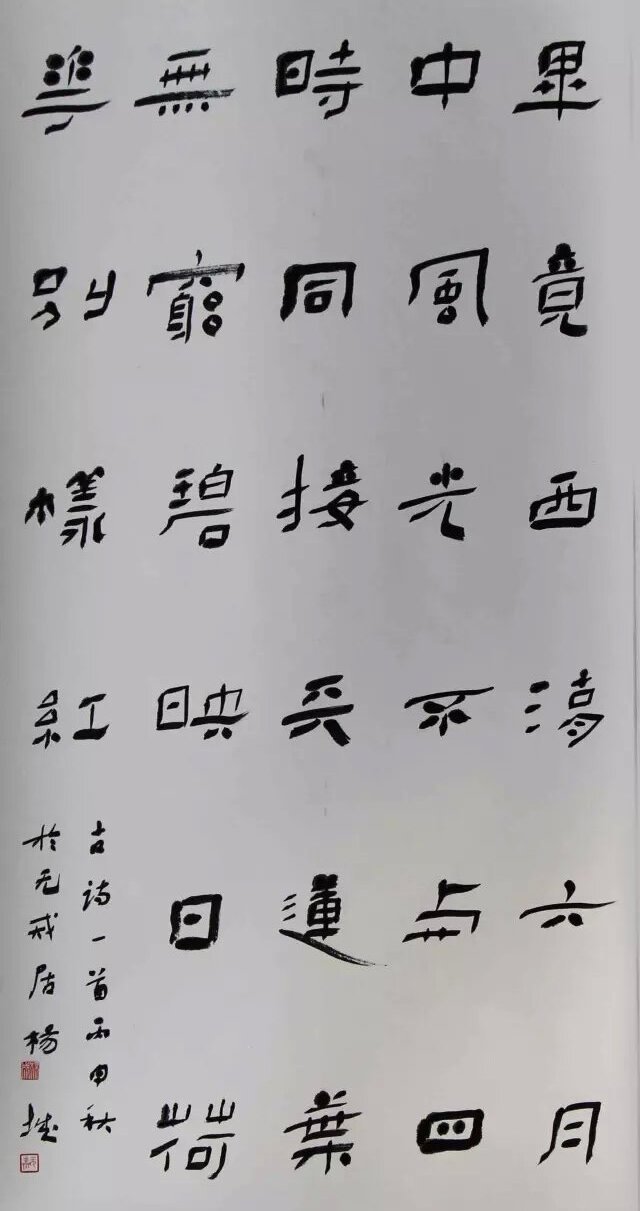 畢竟西湖六月
中風光不与四
時同接天蓮葉
無竆碧映日荷
華別樣紅
古诗一首丙申秋
於无戒居楊